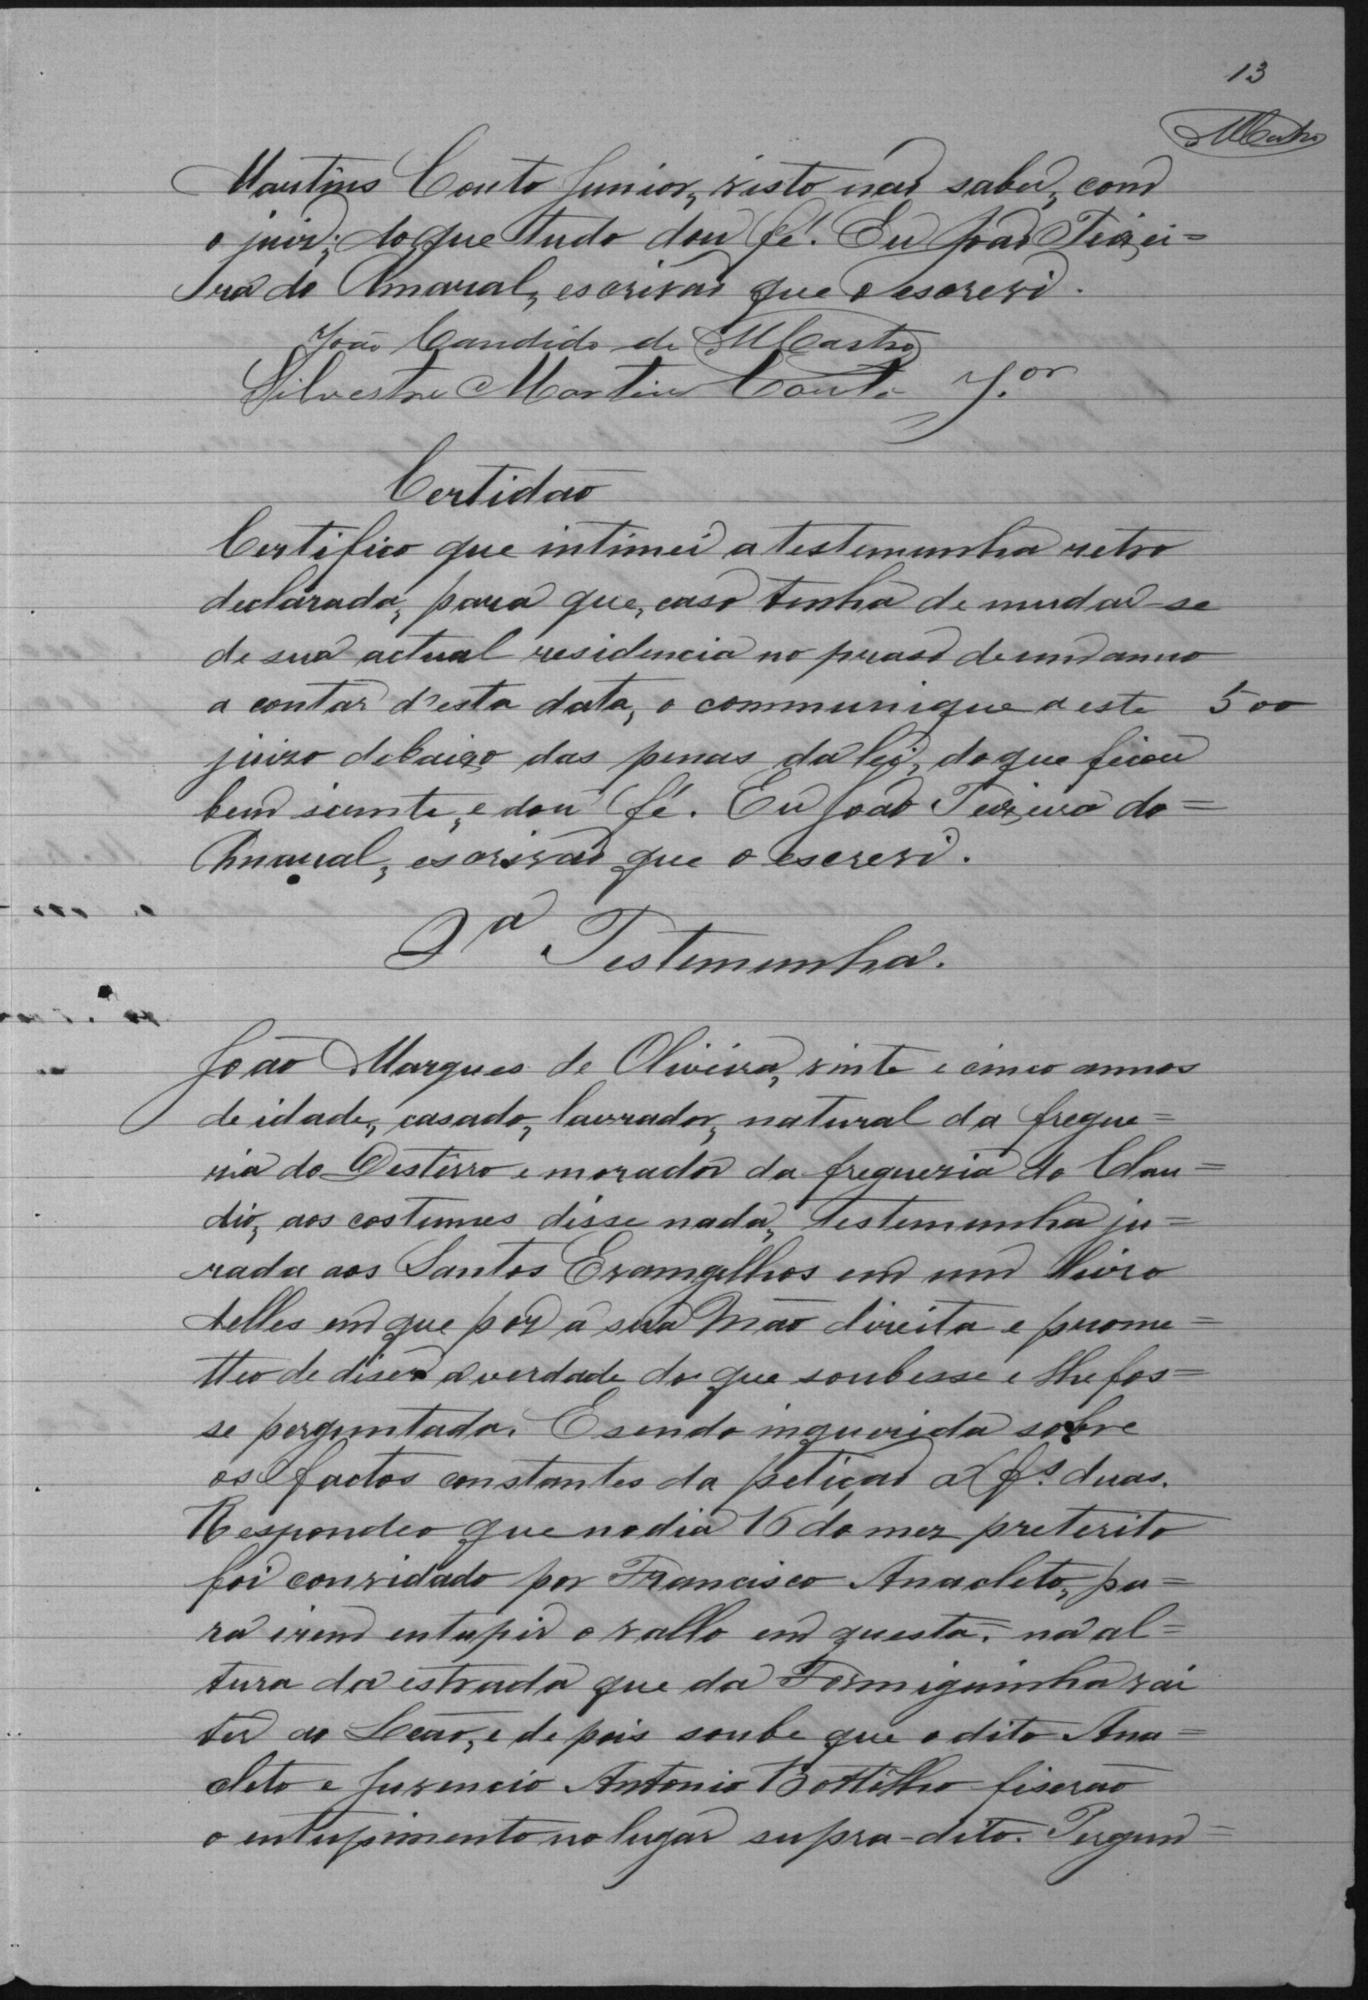 13
MCastro
Martins Couto Junior, visto não saber, com
o juiz; do que tudo dou fé. Eu João Teixei=
ra do Amaral, escrivão que o escrevi.
João Candido de MCastro
Silvestre Martins Couto J.or
Certidão
Certifico que intimei a testemunha retro
declarada, para que, caso tenha de mudar-se
de sua actual residencia no praso de um anno
a contar d'esta data, o communique a este 500
juizo debaixo das penas da lei, do que ficou
bem sciente, e dou fé. Eu João Teixeira do=
Amaral, escrivão que o escrevi.
2ª Testemunha.
João Marques de Oliveira, vinte e cinco annos
de idade, casado, lavrador, natural da fregue=
zia do Desterro e morador da freguezia do Clau=
dio, aos costumes disse nada, testemunha ju=
rada aos Santos Evangelhos em um livro
delles em que poz a sua mão direita e prome=
tteo de diser a verdade do que soubesse e lhe fos=
se perguntado. E sendo inquerida sobre
os factos constantes da petição a fs. duas.
Respondeo que no dia 16 do mez preterito
foi convidado por Francisco Anacleto, pa=
ra irem entupir o vallo em questã. na al=
tura da estrada que da Formiguinha vai
ter ao Leão, e depois soube que o dito Ana=
cleto e Juvencio Antonio Bottilho fiserão
o entupimento no lugar supra-dito. Pergun=